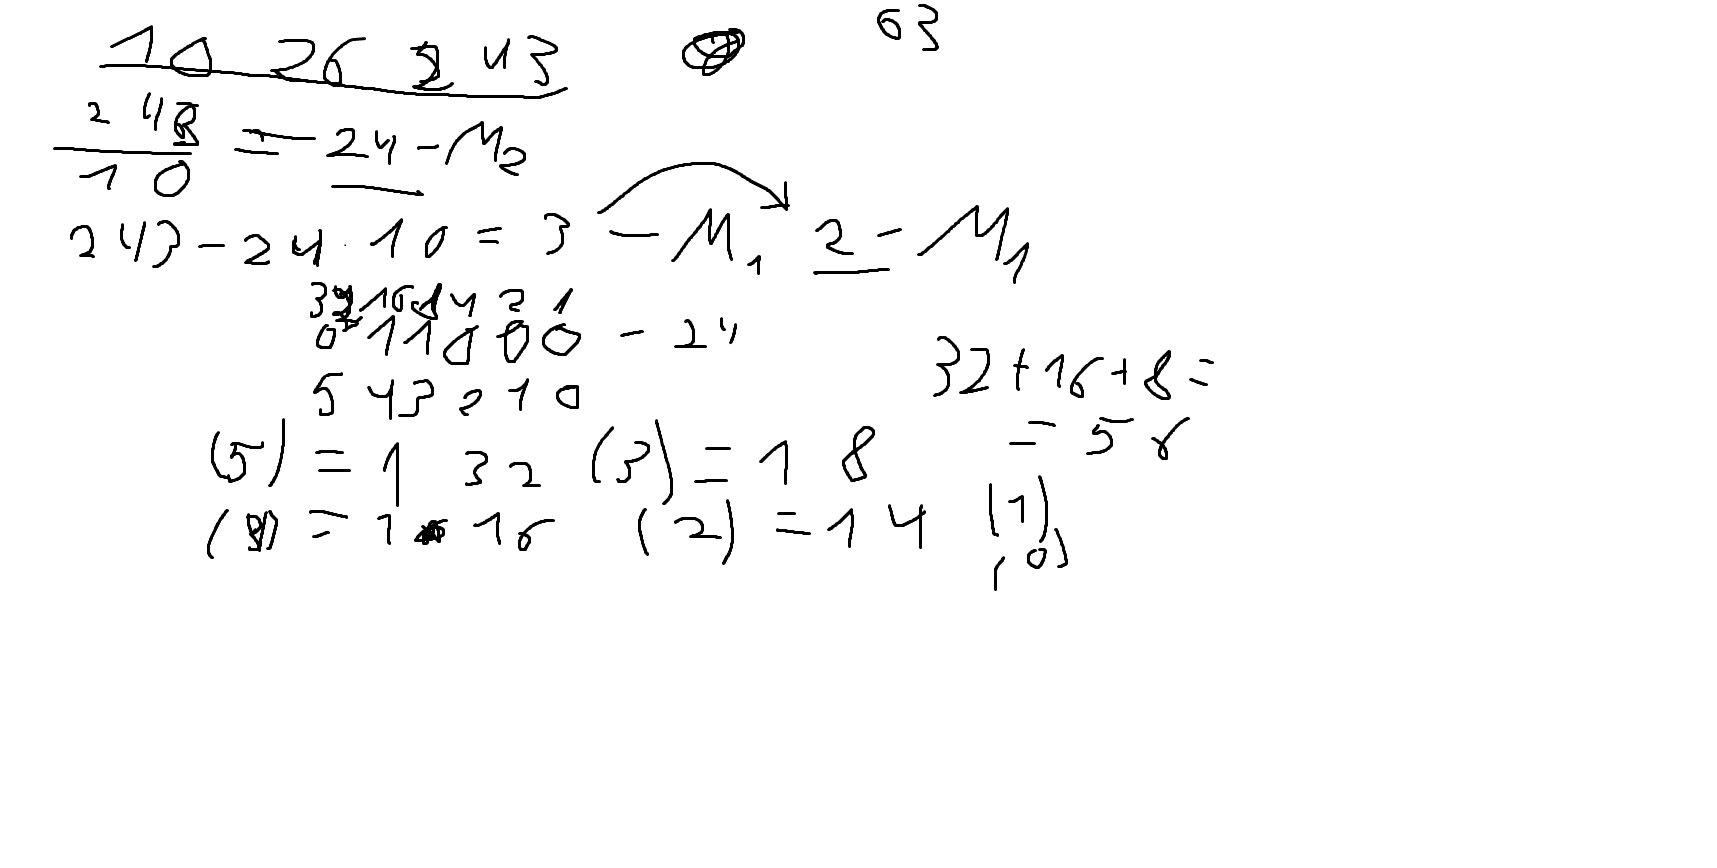 63
10 26 2 43
243
10
= 24 - M2
243 - 24 · 10 = 3 - M1 2 - M1
32 16 8 4 2 1
0 1 1 0 0 0 - 24
5 4 3 2 1 0
32 + 16 + 8 =
= 56
(5) = 1 32 (3) = 1 8
( ) = 1 16 (2) = 1 4 (1)
(0)